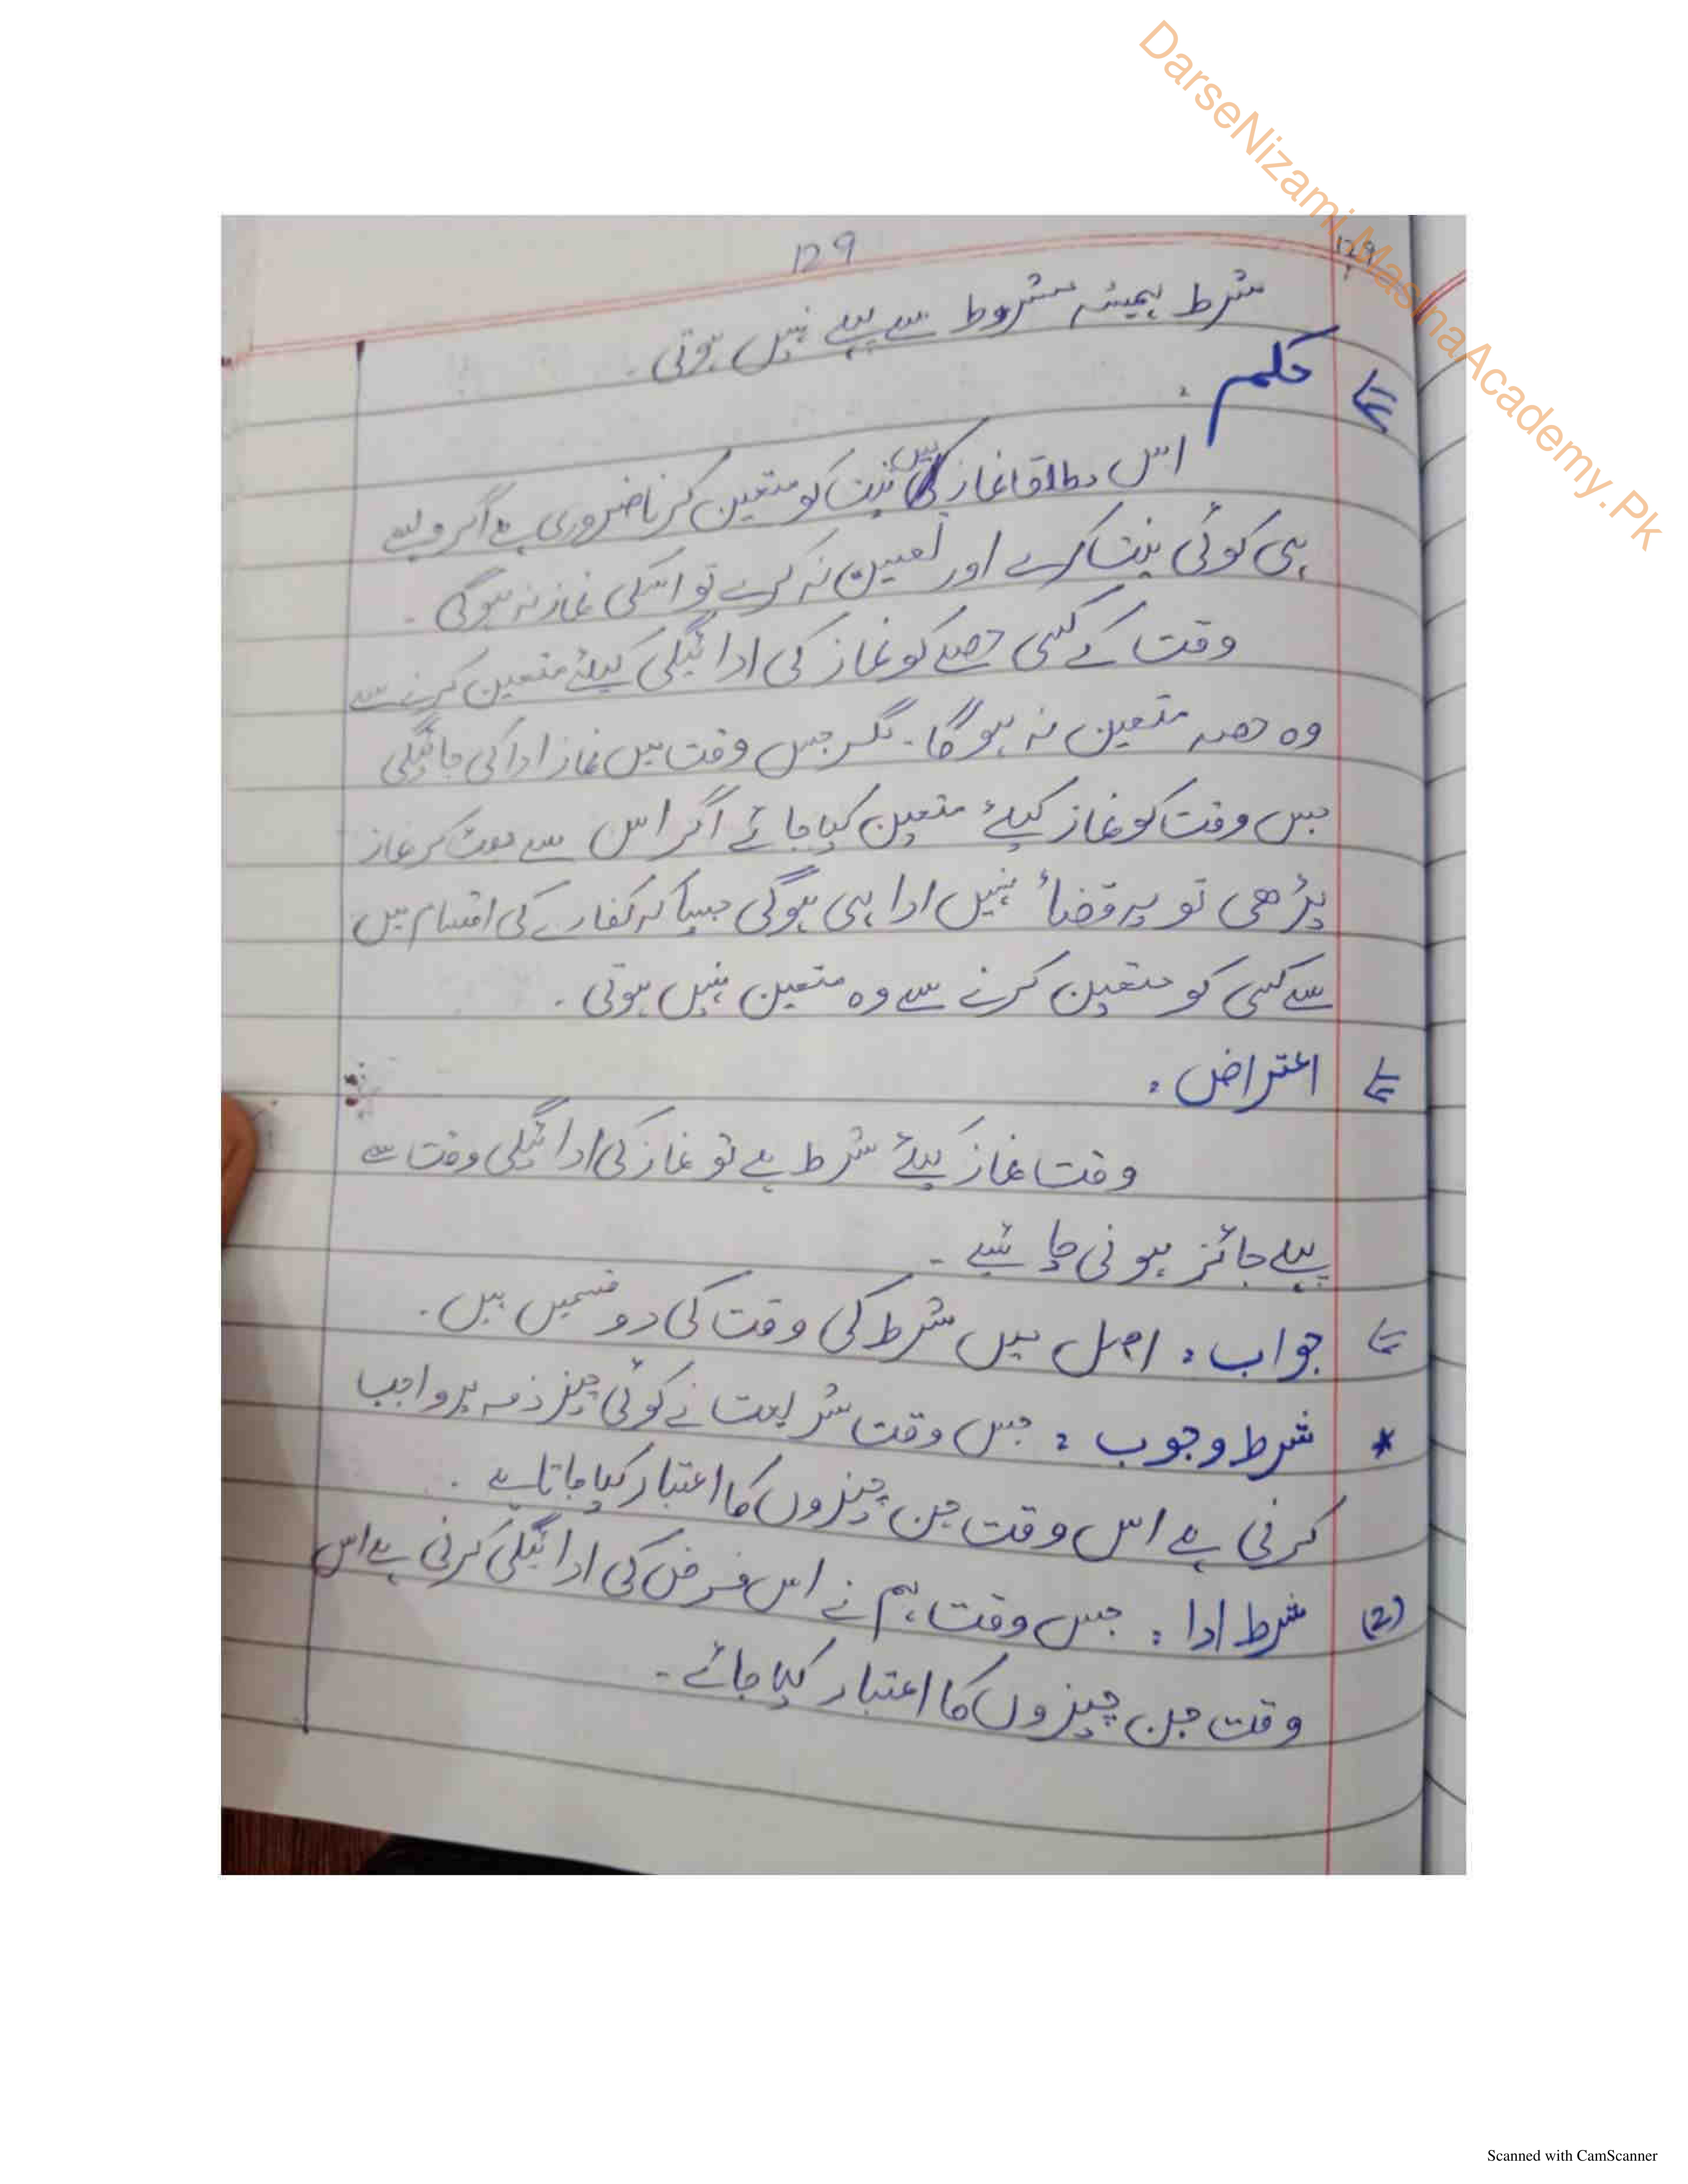 DarseNizami.MasinaAcademy.Pk
129
129
شرط ہمیشہ مشروط سے پہلے نہیں ہوتی۔
حکم :
اس مطلقا نماز میں نیت کو متعین کرنا ضروری ہے اگر ویسے
ہی کوئی نیت کرے اور تعیین نہ کرے تو اسکی نماز نہ ہوگی۔
وقت کے کسی حصے کو نماز کی ادائیگی کیلئے متعین کرنے سے
وہ حصہ متعین نہ ہوگا۔ مگر جس وقت میں نماز ادا کی جائیگی
جس وقت کو نماز کیلئے متعین کیا جائے اگر اس سے ہٹ کر نماز
پڑھی تو یہ قضاً نہیں ادا ہی ہوگی جیسا کہ کفارے کی اقسام میں
سے کسی کو متعین کرنے سے وہ متعین نہیں ہوتی۔
اعتراض :
وقت نماز کیلئے شرط ہے تو نماز کی ادائیگی وقت سے
پہلے جائز ہونی چاہئیے۔
جواب : اصل میں شرط کی وقت کی دو قسمیں ہیں۔
* شرط وجوب : جس وقت شریعت نے کوئی چیز ذمہ پر واجب
کرنی ہے اس وقت جن چیزوں کا اعتبار کیا جاتا ہے۔
(2) شرط ادا : جس وقت ہم نے اس فرض کی ادائیگی کرنی ہے اس
وقت جن چیزوں کا اعتبار کیا جائے۔
Scanned with CamScanner